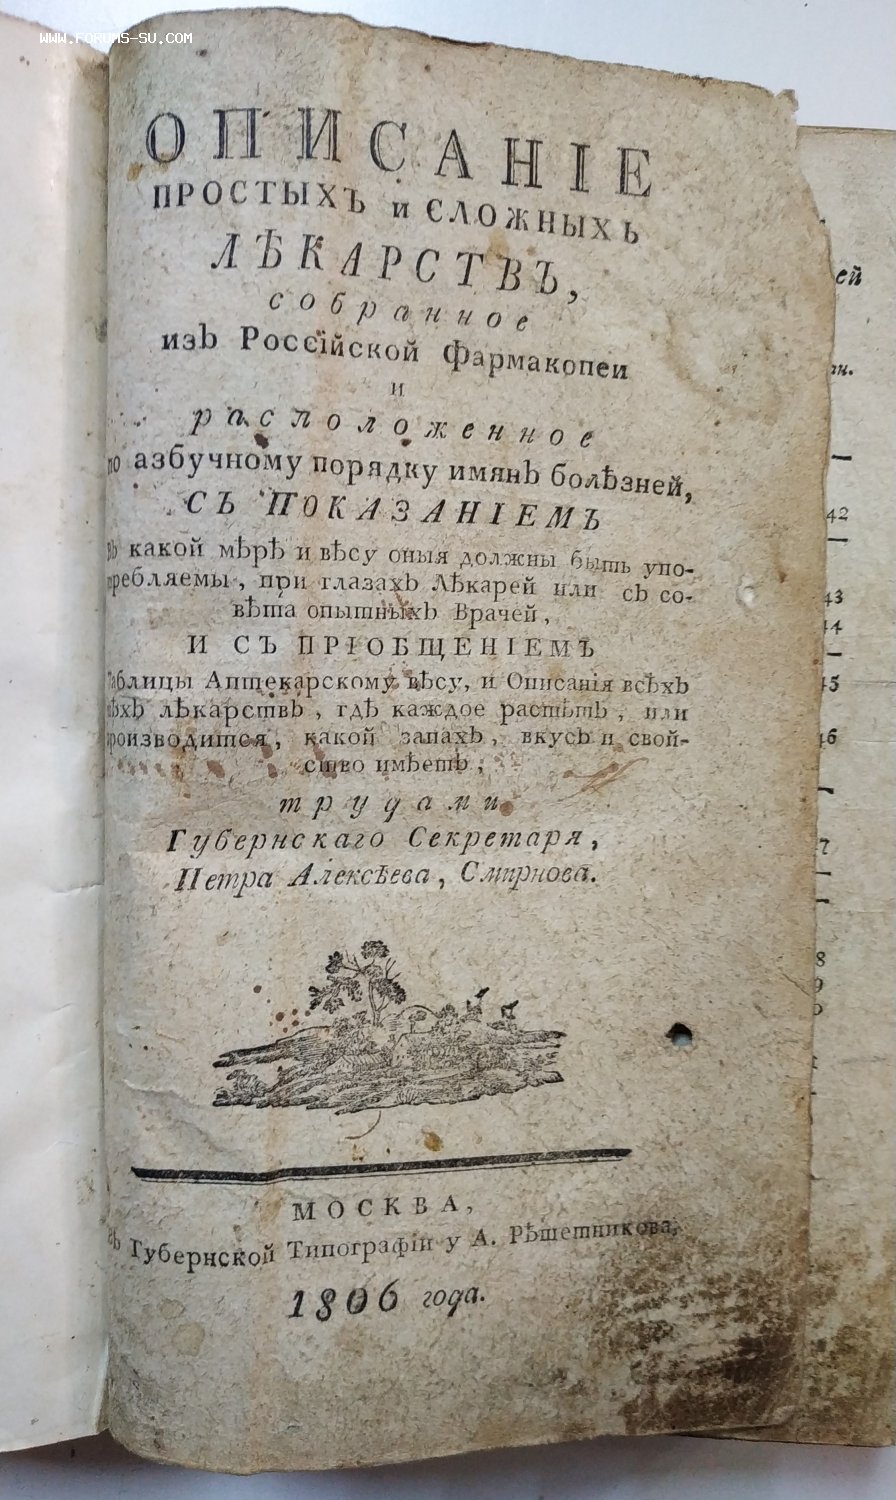 WWW.FORUMS-SU.COM
ОПИСАНІЕ
ПРОСТЫХЪ И СЛОЖНЫХЪ
ЛѢКАРСТВЪ,
собранное
изъ Россійской Фармакопеи
и
расположенное
по азбучному порядку имянъ болѣзней,
СЪ ПОКАЗАНІЕМЪ
въ какой мѣрѣ и вѣсу оныя должны быть упо-
требляемы, при глазахъ Лѣкарей или съ со-
вѣта опытныхъ Врачей,
И СЪ ПРІОБЩЕНІЕМЪ
Таблицы Аптекарскому вѣсу, и Описанія всѣхъ
тѣхъ лѣкарствъ, гдѣ каждое растетъ, или
производится, какой запахъ, вкусъ и свой-
ство имѣетъ;
трудами
Губернскаго Секретаря,
Петра Алексѣева, Смирнова.
МОСКВА,
въ Губернской Типографіи у А. Рѣшетникова,
1806 года.
ей
42
43
44
45
46